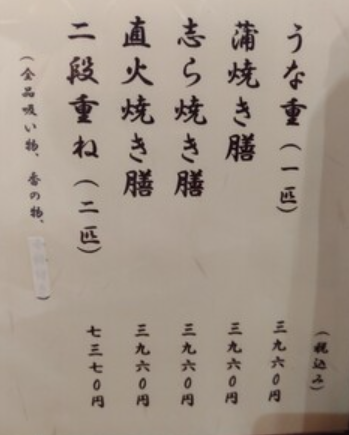 (税込み)
うな重(一匹) 三九六0円
蒲焼き膳 三九六0円
志ら焼き膳 三九六0円
直火焼き膳 三九六0円
二段重ね(二匹) 七三七0円
(全品吸い物、香の物、)